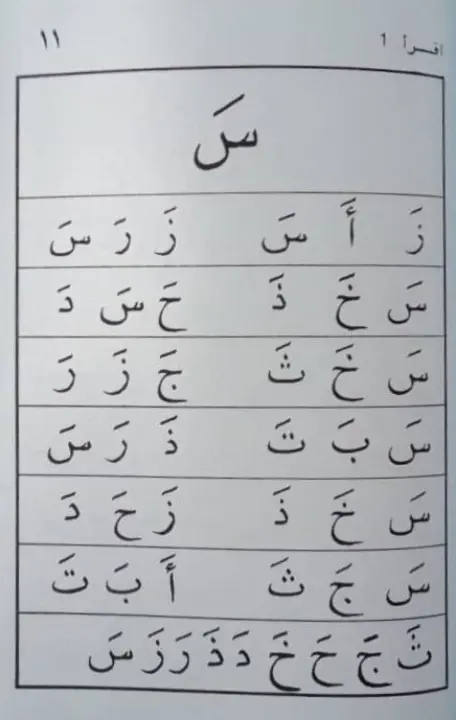 اقرأ 1 ١١
سَ
زَ أَ سَ زَ رَ سَ
سَ خَ ذَ حَ سَ دَ
سَ خَ ثَ جَ زَ رَ
سَ بَ تَ ذَ رَ سَ
سَ خَ ذَ زَ حَ دَ
سَ جَ ثَ أَ بَ تَ
ثَ جَ حَ خَ دَ ذَ رَ زَ سَ